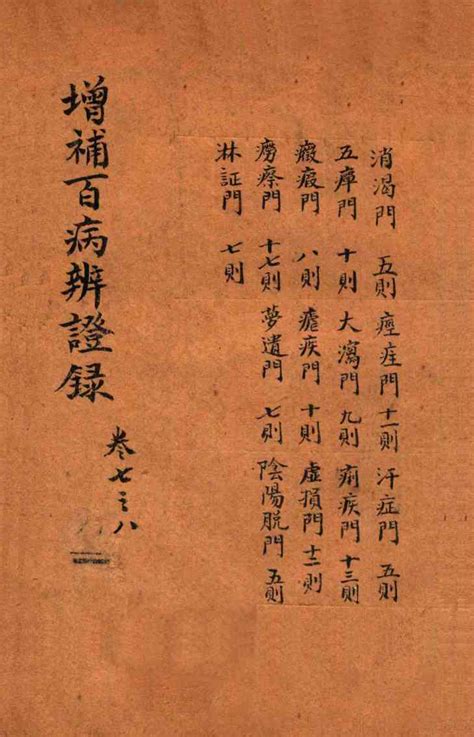 消渴門 五則 痙痓門 十一則 汗症門 五則
五癉門 十則 大瀉門 九則 痢疾門 十三則
癥瘕門 八則 瘧疾門 十則 虛損門 十二則
癆瘵門 十七則 夢遺門 七則 陰陽脫門 五則
淋証門 七則
增補百病辨證錄
卷七之八